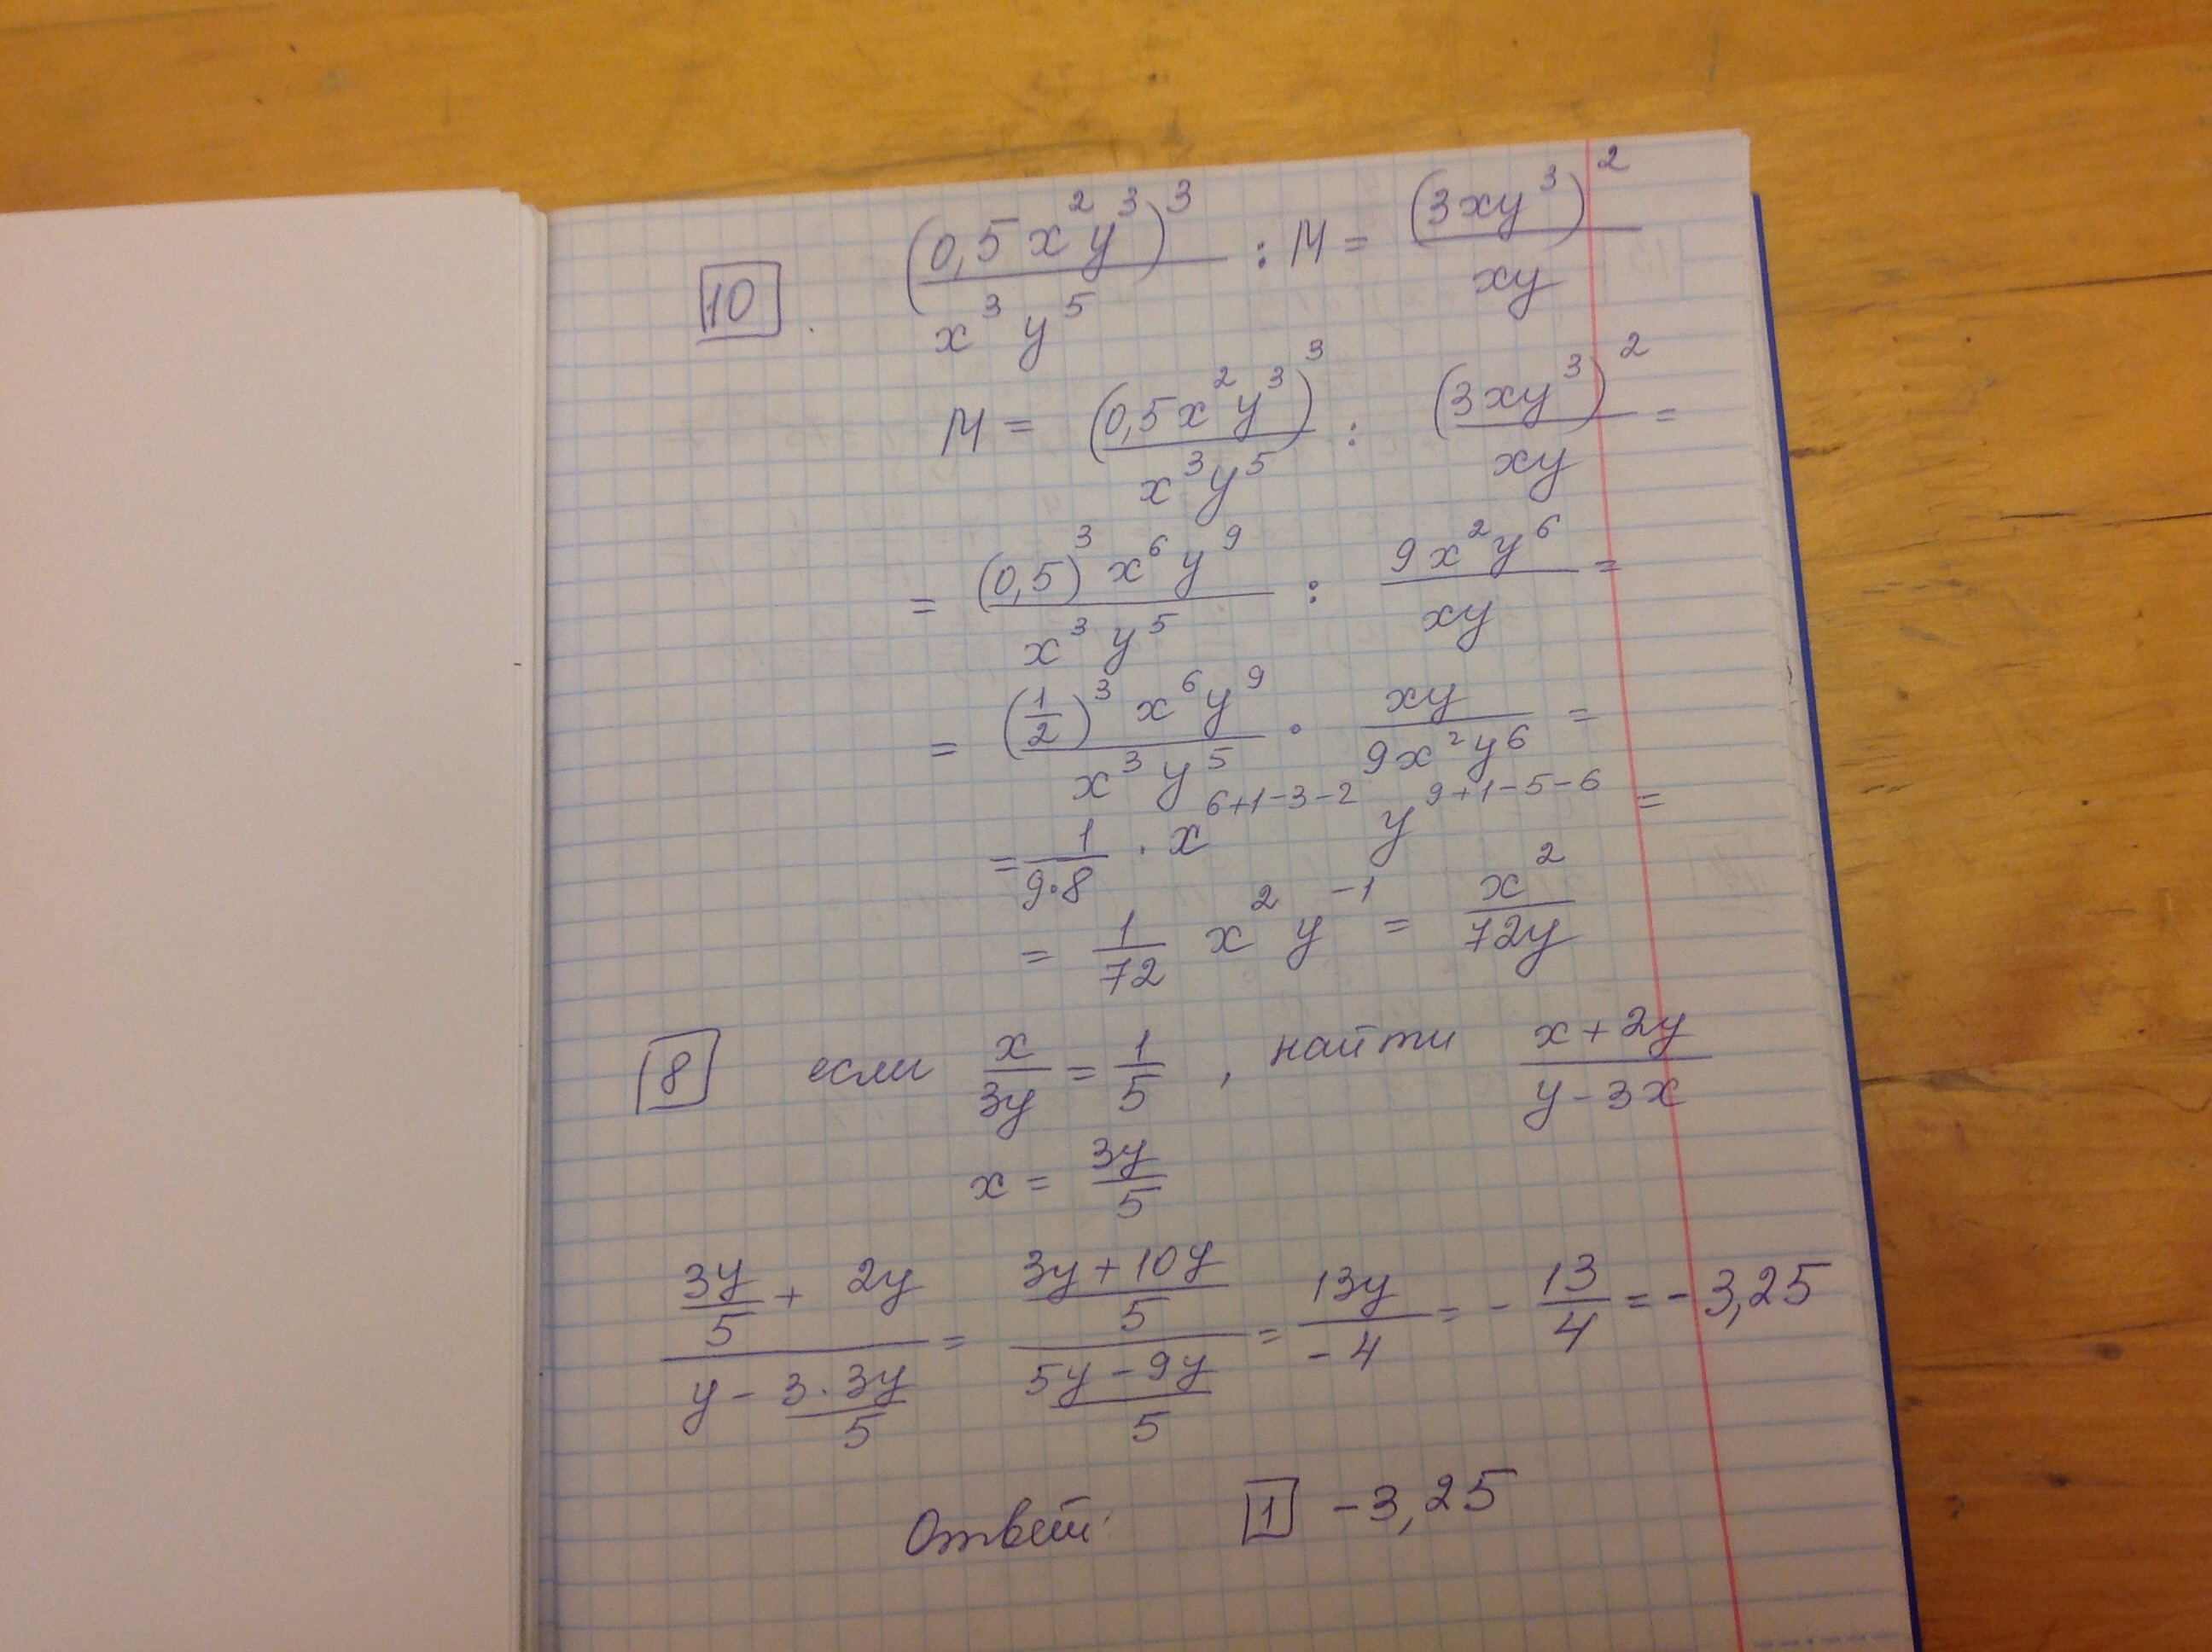 10. (0,5x²y³)³/x³y⁵ : M = (3xy³)²/xy
M = (0,5x²y³)³/x³y⁵ : (3xy³)²/xy =
= (0,5)³x⁶y⁹/x³y⁵ : 9x²y⁶/xy =
= (1/2)³x⁶y⁹/x³y⁵ · xy/9x²y⁶ =
= 1/9·8 · x⁶⁺¹⁻³⁻² y⁹⁺¹⁻⁵⁻⁶ =
= 1/72 x²y⁻¹ = x²/72y
8 если x/3y = 1/5, найти x+2y/y-3x
x = 3y/5
3y/5 + 2y / y - 3·3y/5 = 3y+10y/5 / 5y-9y/5 = 13y/-4 = -13/4 = -3,25
Ответ: 1 -3,25